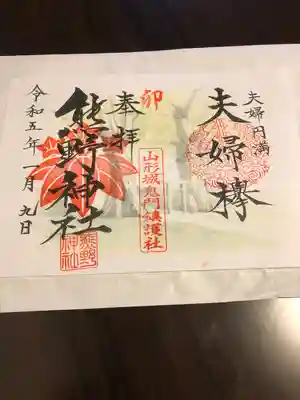 夫婦円満
夫婦欅
卯
奉拝
山形城鬼門鎮護社
熊野神社
熊野神社
令和五年一月九日